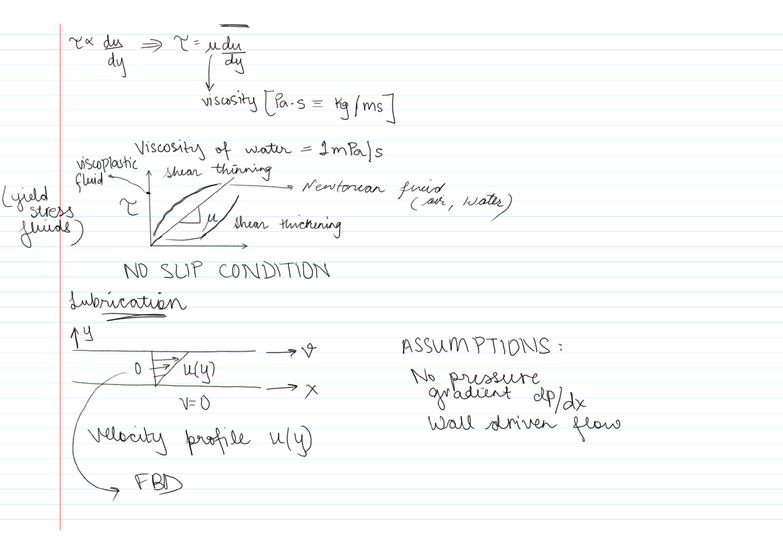 τ ∝ du/dy ⇒ τ = μ du/dy
viscosity [Pa·s ≡ kg/ms]
Viscosity of water = 1mPa/s
viscoplastic fluid
shear thinning
Newtonian fluid
(air, water)
(yield stress fluids)
τ
μ
shear thickening
NO SLIP CONDITION
Lubrication
y
v
0 u(y)
x
V=0
velocity profile u(y)
FBD
ASSUMPTIONS:
No pressure
gradient dp/dx
Wall driven flow